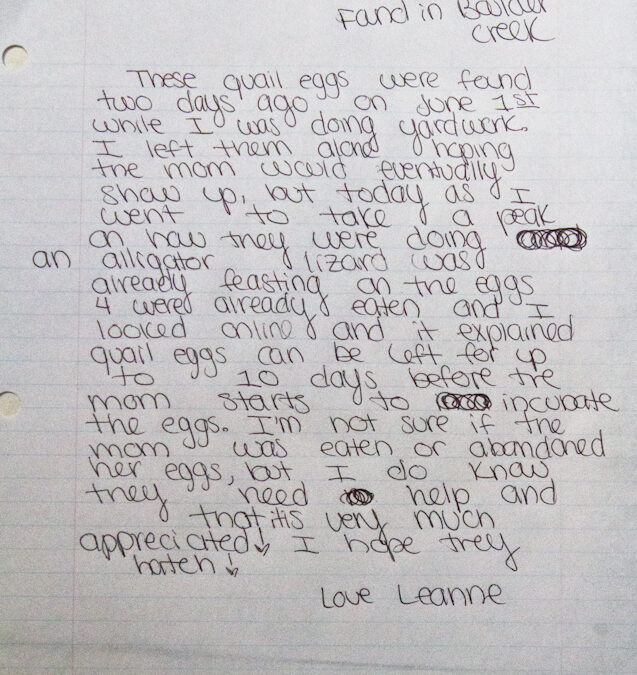 Found in Boulder
Creek
These quail eggs were found
two days ago on June 1st
while I was doing yardwork.
I left them alone hoping
the mom would eventually
show up, but today as I
went to take a peak
on how they were doing
an alligator lizard was
already feasting on the eggs
4 were already eaten and I
looked online and it explained
quail eggs can be left for up
to 10 days before the
mom starts to incubate
the eggs. I'm not sure if the
mom was eaten or abandoned
her eggs, but I do know
they need help and
that itis very much
appreciated! I hope they
hatch!
Love Leanne